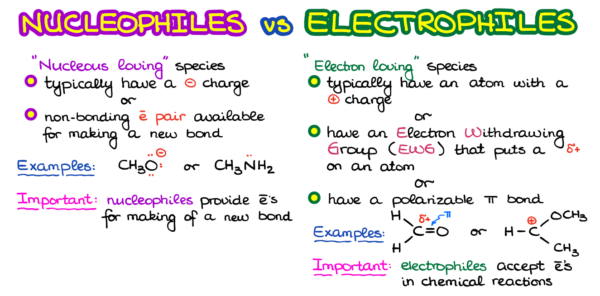 NUCLEOPHILES vs ELECTROPHILES
"Nucleous loving" species
typically have a ⊖ charge
or
non-bonding ē pair available
for making a new bond
Examples: CH₃O:⊖ or CH₃NH₂
Important: nucleophiles provide ē's
for making of a new bond
"Electron loving" species
typically have an atom with a
⊕ charge
or
have an Electron Withdrawing
Group (EWG) that puts a δ+
on an atom
or
have a polarizable π bond
Examples: H H C=O δ+ π or H-C ⊕ OCH₃ CH₃
Important: electrophiles accept ē's
in chemical reactions